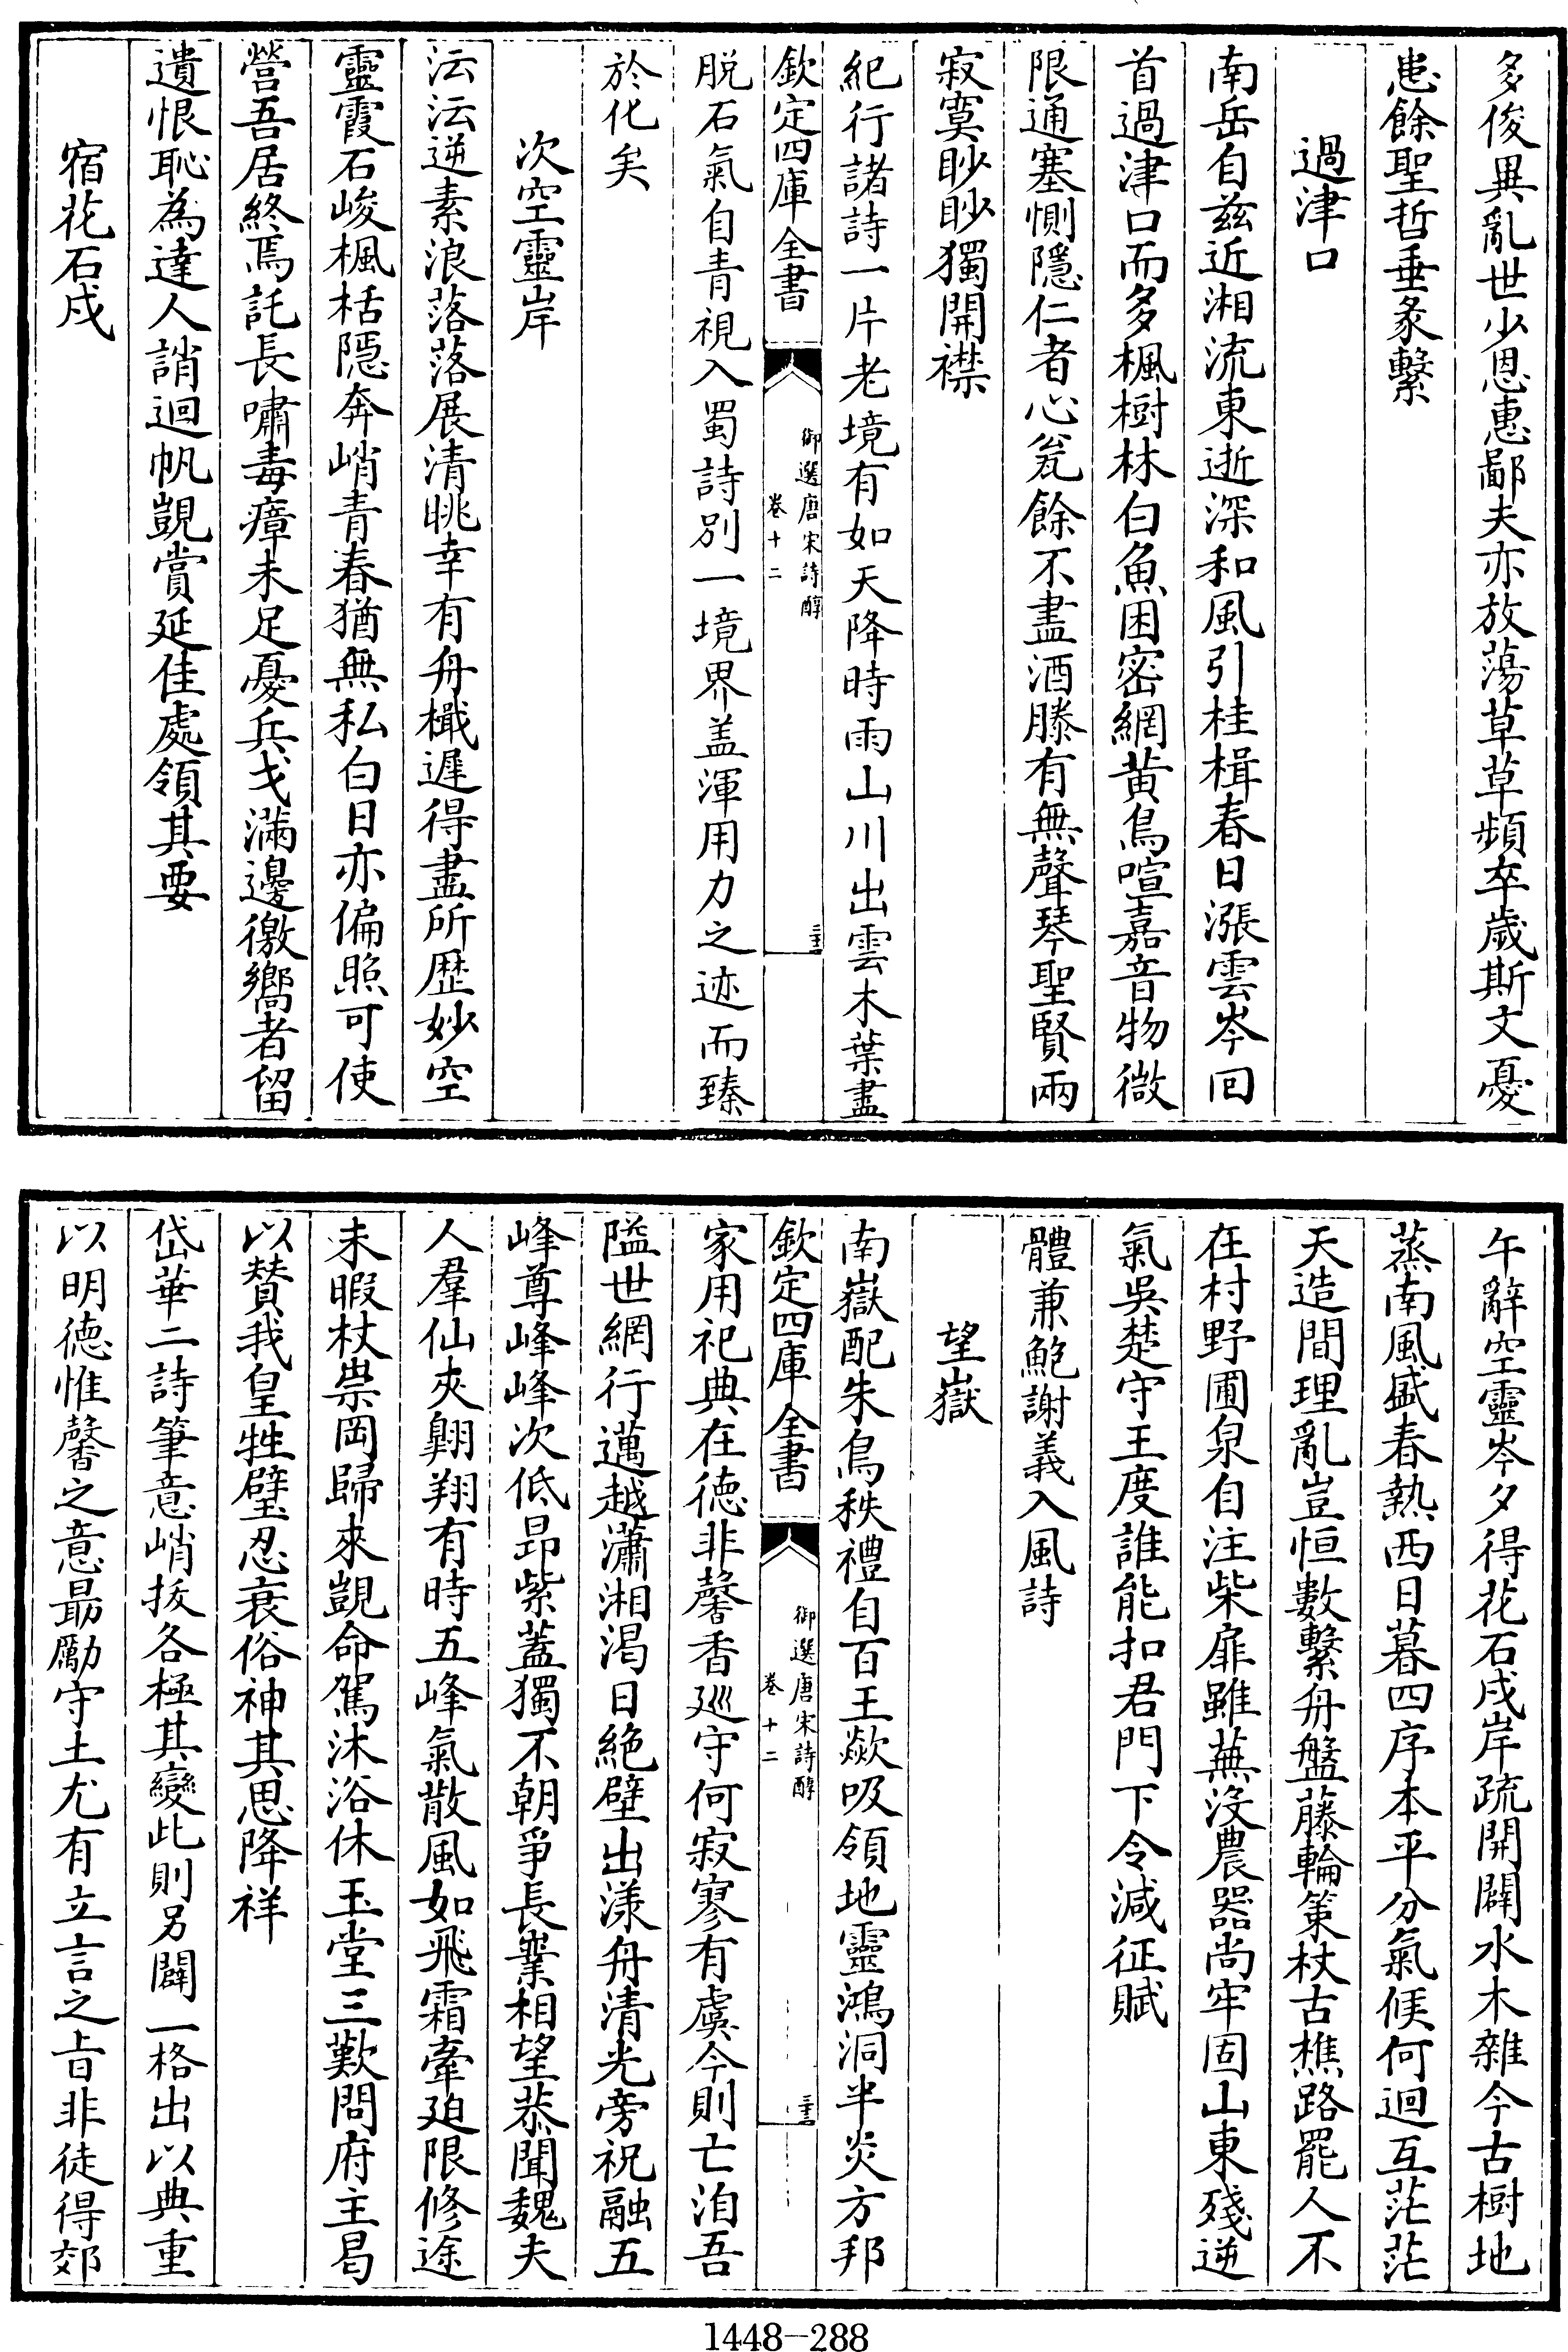 多俊異亂世少恩惠鄙夫亦放蕩草草頻卒歲斯文憂
患餘聖哲垂彖繫
過津口
南岳自兹近湘流東逝深和風引桂楫春日漲雲岑回
首過津口而多楓樹林白魚困密網黄鳥喧嘉音物微
限通塞惻隱仁者心瓮餘不盡酒膝有無聲琴聖賢兩
寂寞眇眇獨開襟
紀行諸詩一片老境有如天降時雨山川出雲木葉盡
欽定四庫全書
御選唐宋詩醇
卷十二
脱石氣自青視入蜀詩別一境界盖渾用力之迹而臻
於化矣
次空靈岸
沄沄逆素浪落落展清眺幸有舟檝遲得盡所歴妙空
靈霞石峻楓栝隱奔峭青春猶無私白日亦偏照可使
營吾居終焉託長嘯毒瘴未足憂兵戈滿邊徼嚮者留
遺恨恥為達人誚迴帆覬賞延佳處領其要
宿花石戍
午辭空靈岑夕得花石戍岸疏開闢水木雜今古樹地
蒸南風盛春熱西日暮四序本平分氣候何迴互茫茫
天造間理亂豈恒數繫舟盤藤輪策杖古樵路罷人不
在村野圃泉自注柴扉雖蕪沒農器尚牢固山東殘逆
氣吳楚守王度誰能扣君門下令減征賦
體兼鮑謝義入風詩
望嶽
南嶽配朱鳥秩禮自百王歘吸領地靈鴻洞半炎方邦
欽定四庫全書
御選唐宋詩醇
卷十二
家用祀典在德非馨香廵守何寂寥有虞今則亡洎吾
隘世網行邁越瀟湘渴日絶壁出漾舟清光旁祝融五
峰尊峰峰次低昂紫蓋獨不朝爭長嶪相望恭聞魏夫
人羣仙夾翺翔有時五峰氣散風如飛霜牽迫限修途
未暇杖崇岡歸來覬命駕沐浴休玉堂三歎問府主曷
以賛我皇牲璧忍衰俗神其思降祥
岱華二詩筆意峭拔各極其變此則另闢一格出以典重
以明德惟馨之意朂勵守土尤有立言之旨非徒得郊
1448—288